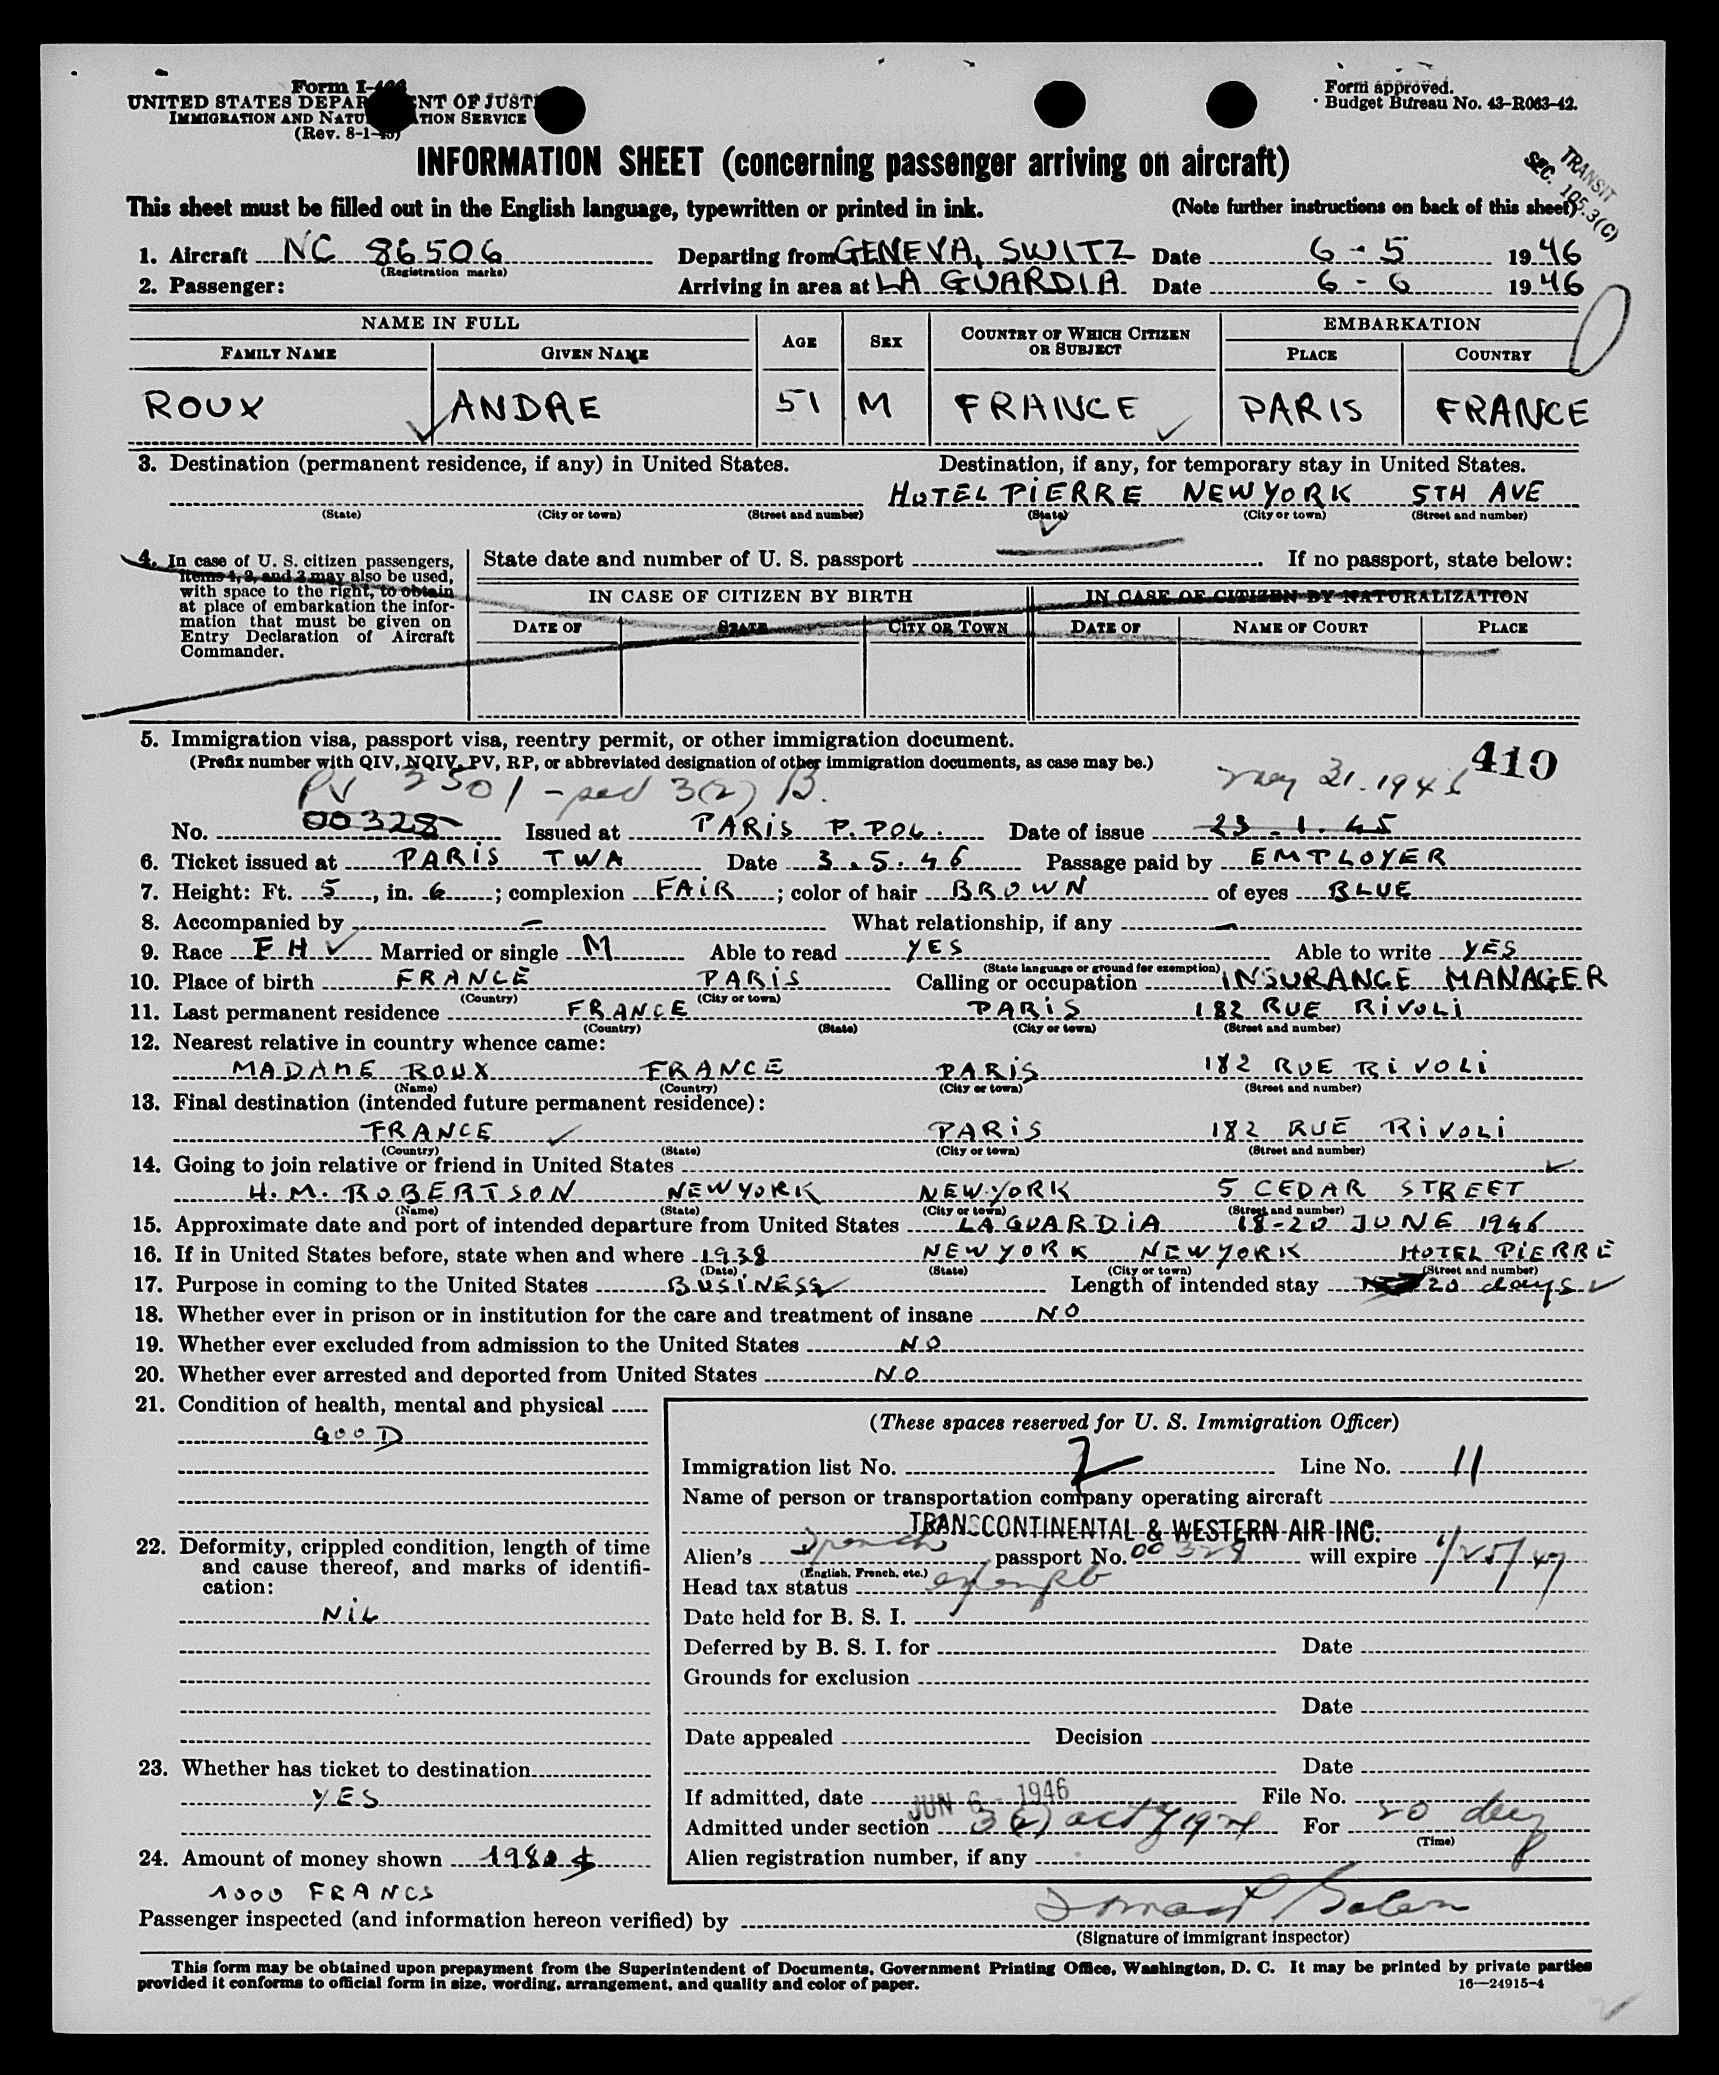 Form I-466
UNITED STATES DEPARTMENT OF JUSTICE
IMMIGRATION AND NATURALIZATION SERVICE
(Rev. 8-1-45)
Form approved.
Budget Bureau No. 43-R063-42.
TRANSIT
SEC. 105.3(C)
INFORMATION SHEET (concerning passenger arriving on aircraft)
This sheet must be filled out in the English language, typewritten or printed in ink. (Note further instructions on back of this sheet)
1. Aircraft NC 86506 Departing from GENEVA, SWITZ Date 6-5 1946
(Registration marks)
2. Passenger: Arriving in area at LA GUARDIA Date 6-6 1946
NAME IN FULL AGE SEX COUNTRY OF WHICH CITIZEN OR SUBJECT EMBARKATION
FAMILY NAME GIVEN NAME PLACE COUNTRY
ROUX ANDRE 51 M FRANCE PARIS FRANCE
3. Destination (permanent residence, if any) in United States. Destination, if any, for temporary stay in United States.
HOTEL PIERRE NEW YORK 5TH AVE
(State) (City or town) (Street and number) (State) (City or town) (Street and number)
4. In case of U. S. citizen passengers, items 1, 2, and 3 may also be used, with space to the right, to obtain at place of embarkation the information that must be given on Entry Declaration of Aircraft Commander.
State date and number of U. S. passport If no passport, state below:
IN CASE OF CITIZEN BY BIRTH IN CASE OF CITIZEN BY NATURALIZATION
DATE OF STATE CITY OR TOWN DATE OF NAME OF COURT PLACE
5. Immigration visa, passport visa, reentry permit, or other immigration document.
(Prefix number with QIV, NQIV, PV, RP, or abbreviated designation of other immigration documents, as case may be.)
410
PV 2501 - 3(2) B. May 31. 1946
No. 00328 Issued at PARIS P. POL. Date of issue 23.1.45
6. Ticket issued at PARIS TWA Date 3.5.46 Passage paid by EMPLOYER
7. Height: Ft. 5, in. 6; complexion FAIR; color of hair BROWN of eyes BLUE
8. Accompanied by - What relationship, if any -
9. Race FH Married or single M Able to read YES Able to write YES
(State language or ground for exemption)
10. Place of birth FRANCE PARIS Calling or occupation INSURANCE MANAGER
(Country) (City or town)
11. Last permanent residence FRANCE PARIS 182 RUE RIVOLI
(Country) (State) (City or town) (Street and number)
12. Nearest relative in country whence came:
MADAME ROUX FRANCE PARIS 182 RUE RIVOLI
(Name) (Country) (City or town) (Street and number)
13. Final destination (intended future permanent residence):
FRANCE PARIS 182 RUE RIVOLI
(Country) (State) (City or town) (Street and number)
14. Going to join relative or friend in United States
H. M. ROBERTSON NEW YORK NEW YORK 5 CEDAR STREET
(Name) (State) (City or town) (Street and number)
15. Approximate date and port of intended departure from United States LA GUARDIA 18-20 JUNE 1946
16. If in United States before, state when and where 1938 NEW YORK NEW YORK HOTEL PIERRE
(Date) (State) (City or town) (Street and number)
17. Purpose in coming to the United States BUSINESS Length of intended stay 20 days
18. Whether ever in prison or in institution for the care and treatment of insane NO
19. Whether ever excluded from admission to the United States NO
20. Whether ever arrested and deported from United States NO
21. Condition of health, mental and physical
GOOD
22. Deformity, crippled condition, length of time and cause thereof, and marks of identification:
NIL
23. Whether has ticket to destination
YES
24. Amount of money shown 1980 $
1000 FRANCS
(These spaces reserved for U. S. Immigration Officer)
Immigration list No. 2 Line No. 11
Name of person or transportation company operating aircraft
TRANSCONTINENTAL & WESTERN AIR INC.
Alien's French passport No. 00328 will expire 1/25/47
(English, French, etc.)
Head tax status exempt
Date held for B. S. I.
Deferred by B. S. I. for Date
Grounds for exclusion
Date
Date appealed Decision
Date
If admitted, date JUN 6 - 1946 File No.
Admitted under section 3(2) act of 1924 For 20 day
(Time)
Alien registration number, if any
Passenger inspected (and information hereon verified) by
(Signature of immigrant inspector)
This form may be obtained upon prepayment from the Superintendent of Documents, Government Printing Office, Washington, D. C. It may be printed by private parties
provided it conforms to official form in size, wording, arrangement, and quality and color of paper.
16—24915-4